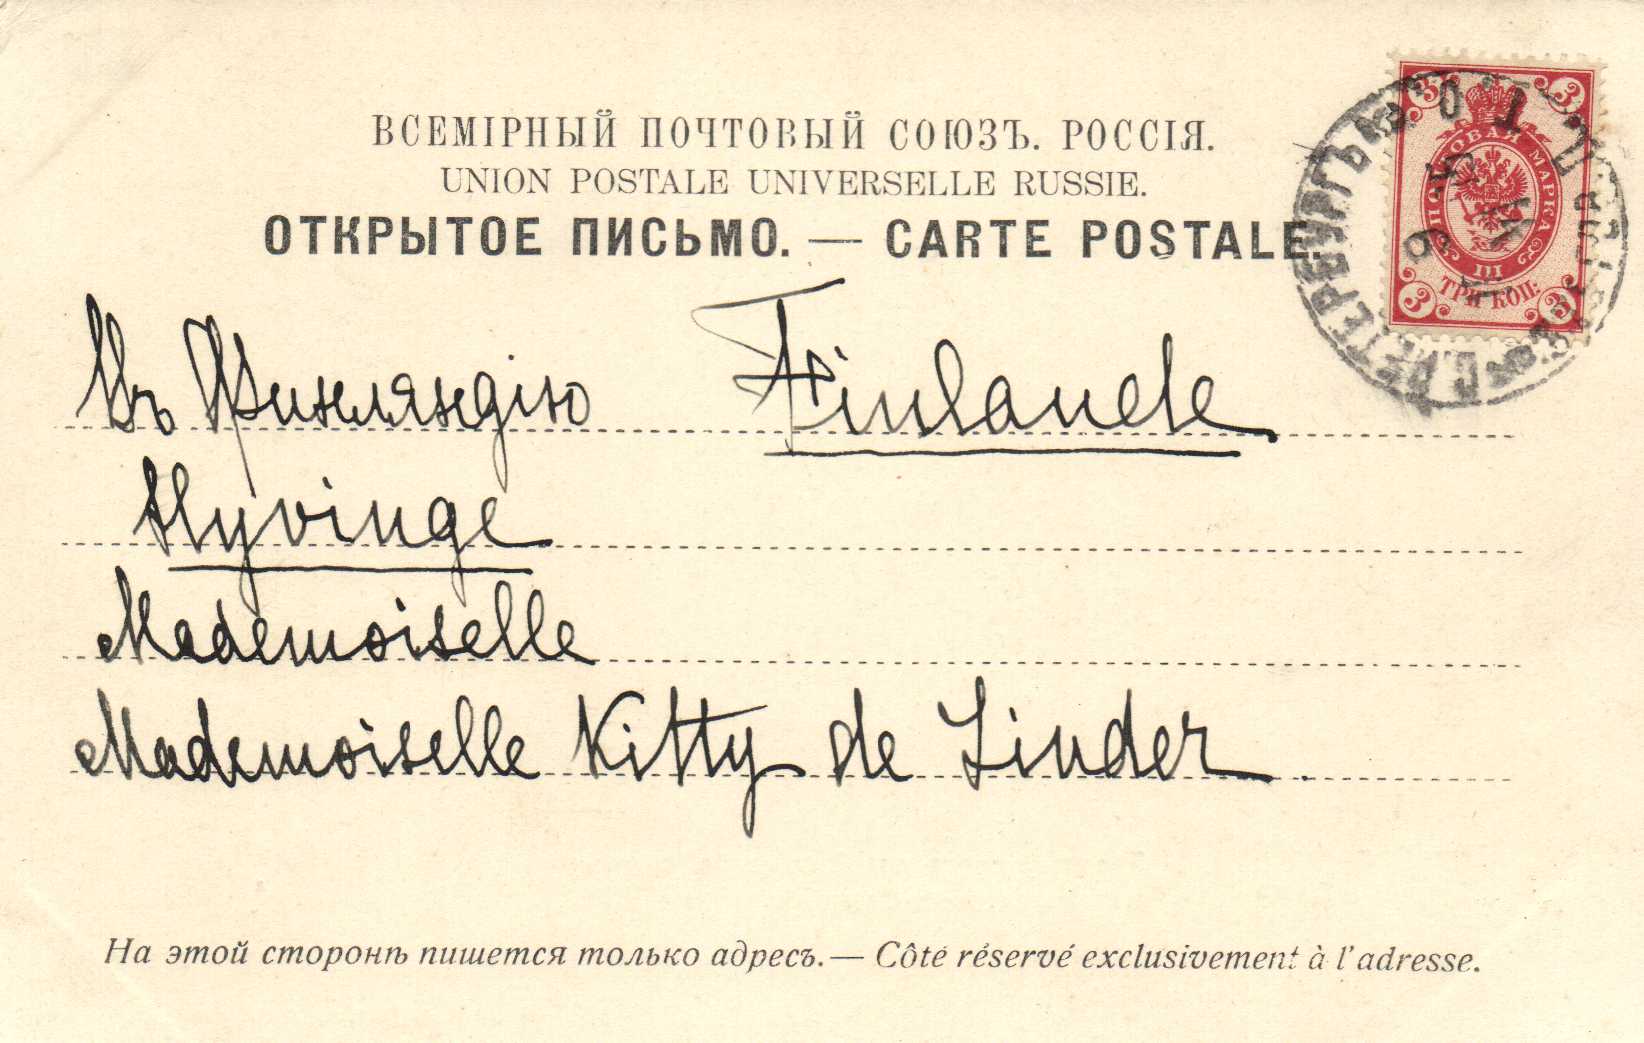 ВСЕМІРНЫЙ ПОЧТОВЫЙ СОЮЗЪ. РОССІЯ.
UNION POSTALE UNIVERSELLE RUSSIE.
ОТКРЫТОЕ ПИСЬМО. — CARTE POSTALE.
3 3
ПОЧТОВАЯ МАРКА
III
ТРИ КОП:
3 3
С. ПЕТЕРБУРГЪ
Въ Финляндію Finlande
Hyvinge
Mademoiselle
Mademoiselle Kitty de Linder.
На этой сторонѣ пишется только адресъ. — Côté réservé exclusivement à l'adresse.